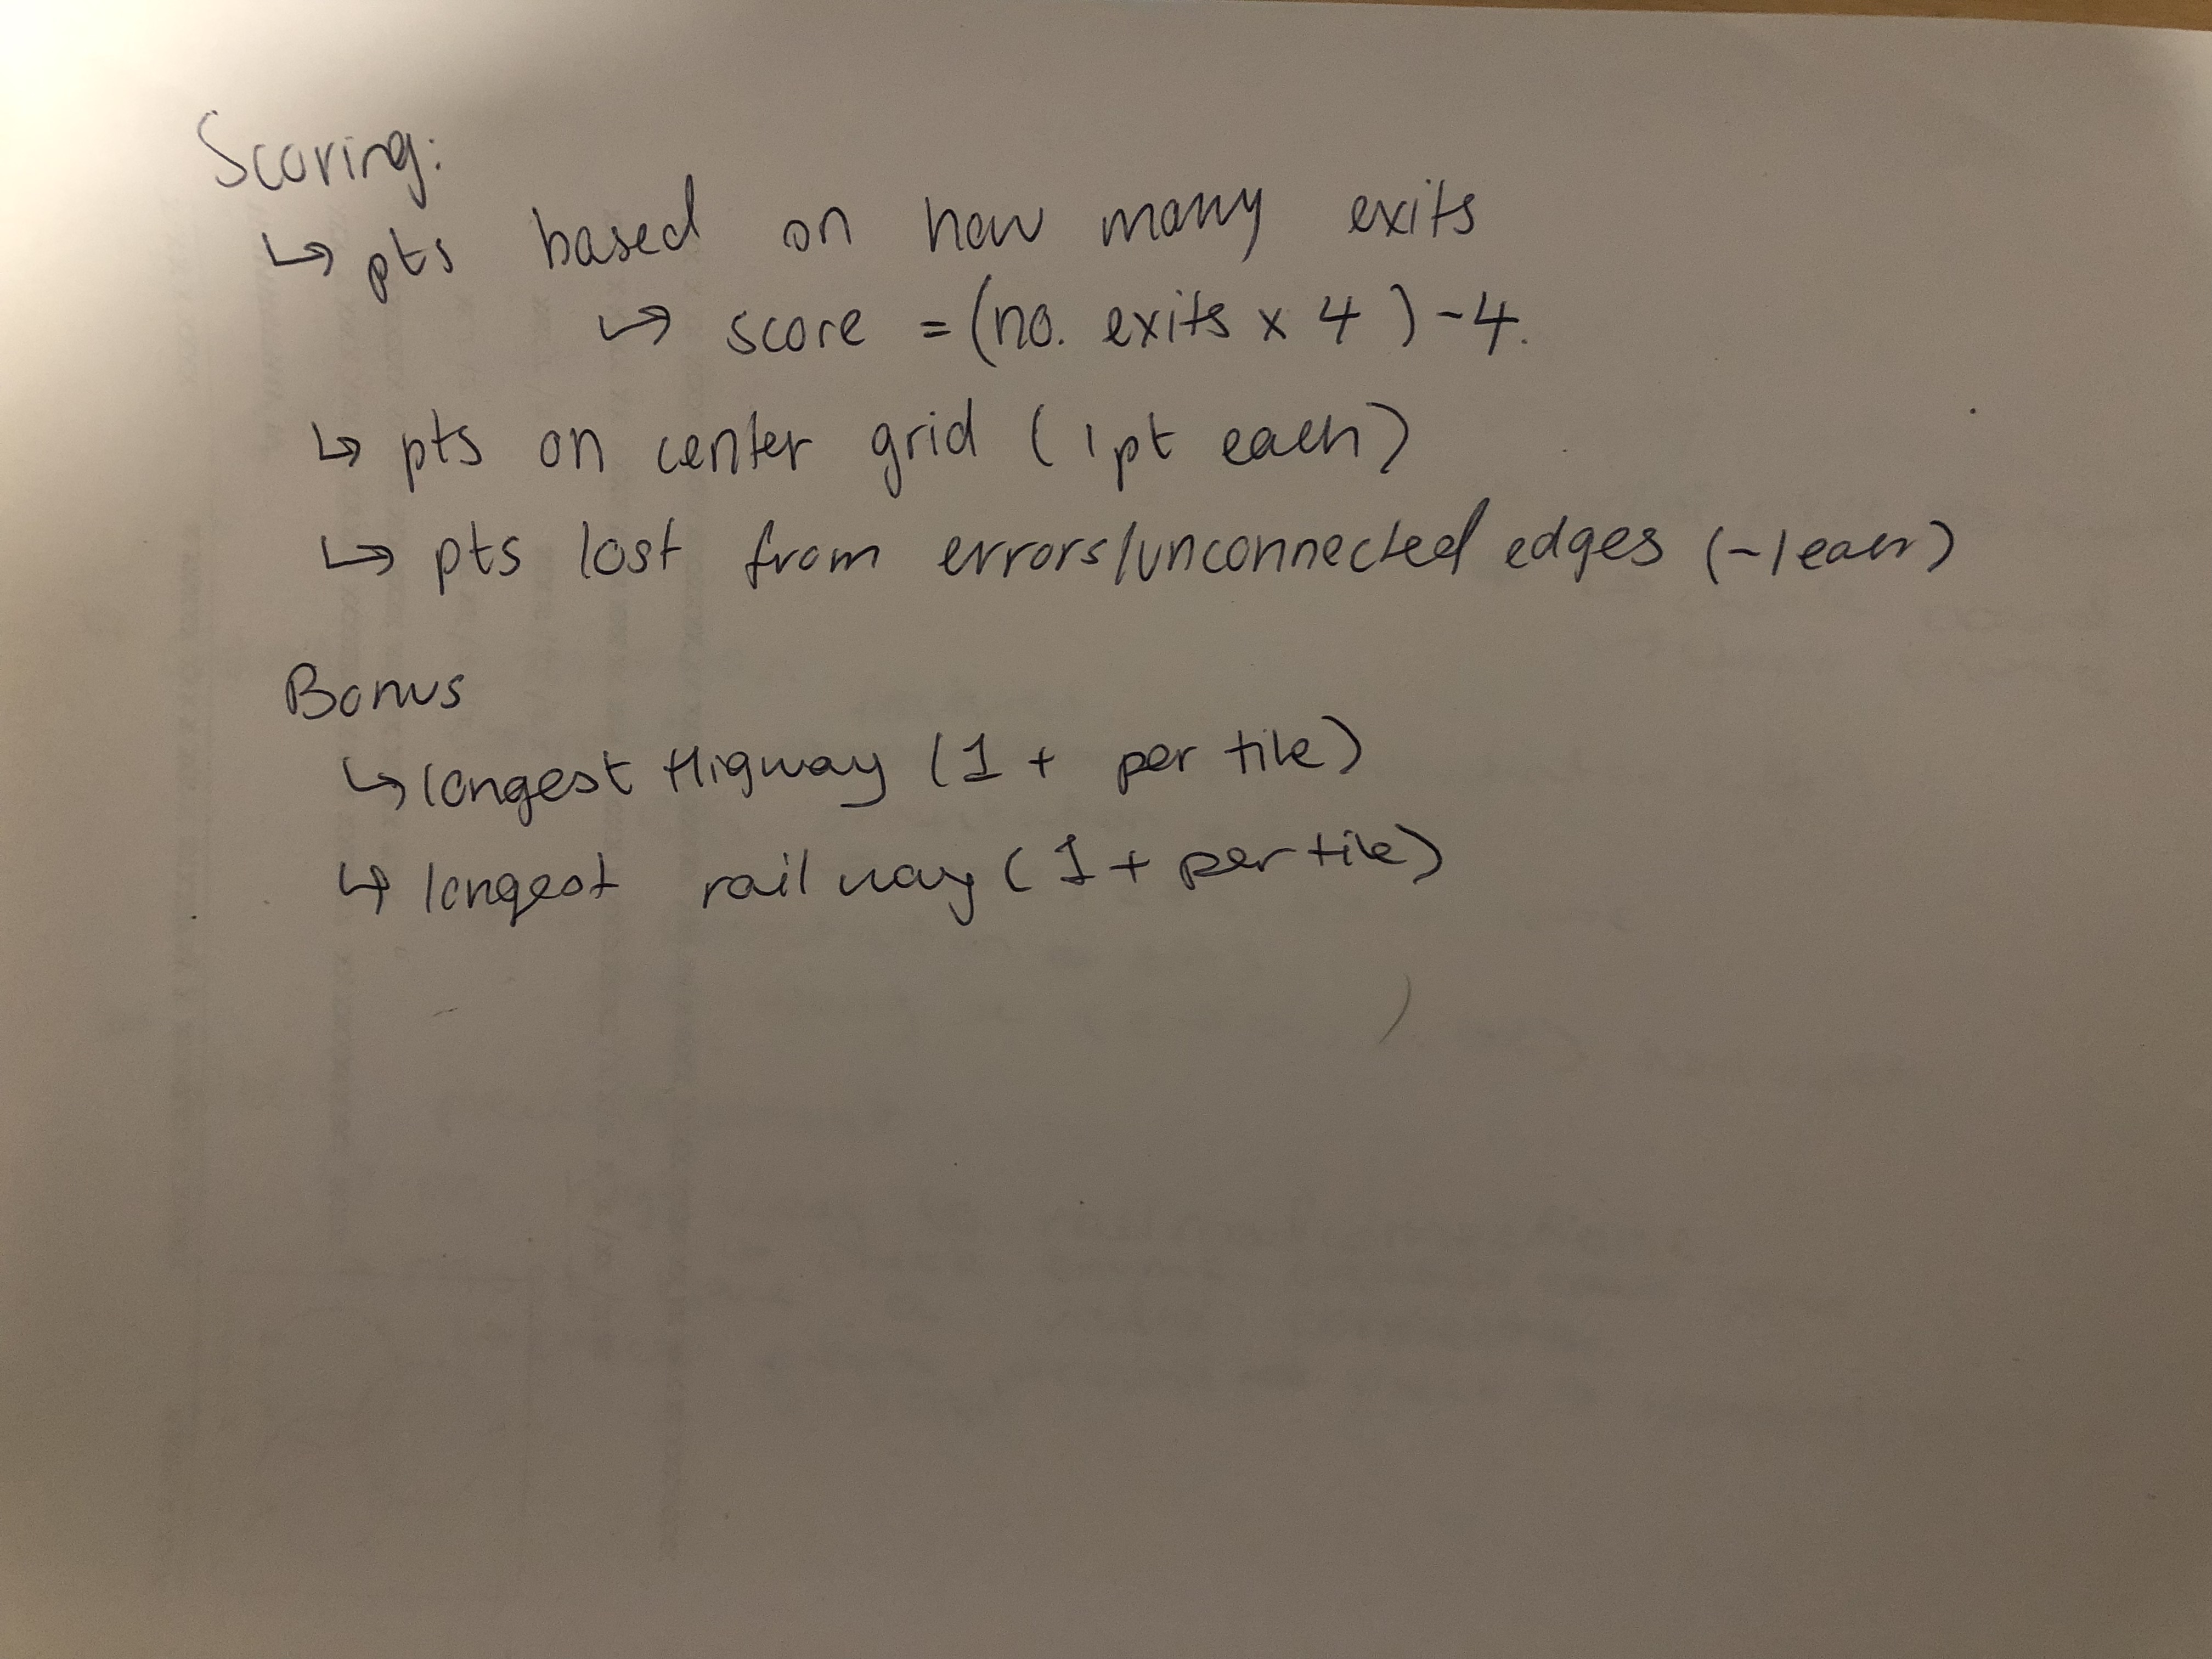 Scoring:
↳ pts based on how many exits
↳ score = (no. exits x 4) - 4.
↳ pts on center grid (1pt each)
↳ pts lost from errors/unconnected edges (-1 each)
Bonus
↳ longest Higway (1 + per tile)
↳ longest railway (1 + per tile)